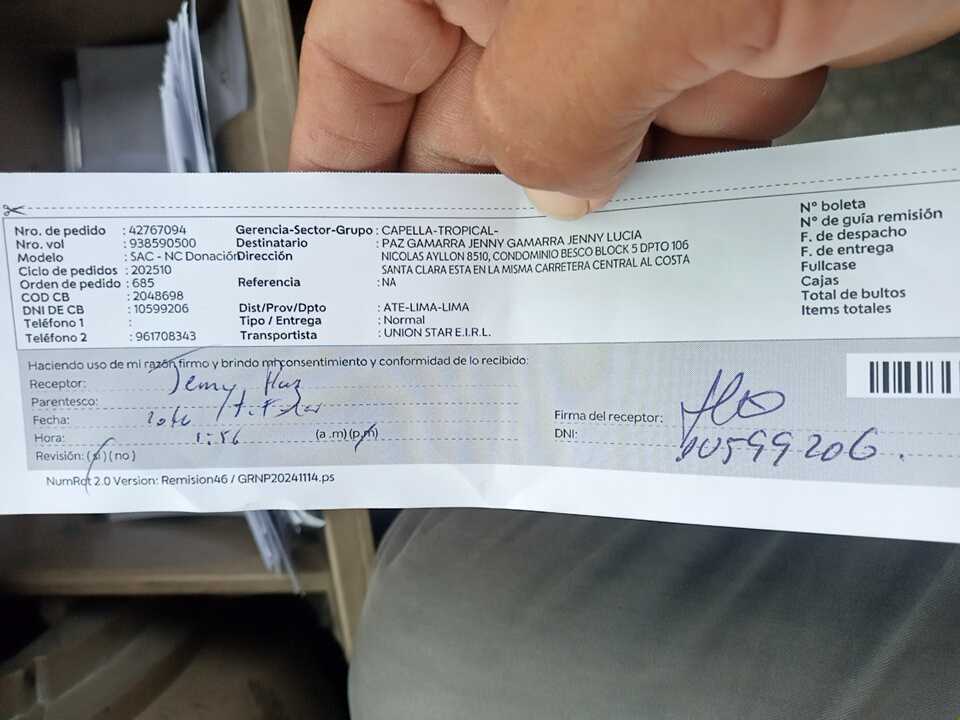 Nro. de pedido : 42767094
Nro. vol : 938590500
Modelo : SAC - NC Donación
Ciclo de pedidos : 202510
Orden de pedido : 685
COD CB : 2048698
DNI DE CB : 10599206
Teléfono 1 :
Teléfono 2 : 961708343
Gerencia-Sector-Grupo : CAPELLA-TROPICAL-
Destinatario : PAZ GAMARRA JENNY GAMARRA JENNY LUCIA
Dirección NICOLAS AYLLON 8510, CONDOMINIO BESCO BLOCK 5 DPTO 106
SANTA CLARA ESTA EN LA MISMA CARRETERA CENTRAL AL COSTA
Referencia : NA
Dist/Prov/Dpto : ATE-LIMA-LIMA
Tipo / Entrega : Normal
Transportista : UNION STAR E.I.R.L.
N° boleta
N° de guía remisión
F. de despacho
F. de entrega
Fullcase
Cajas
Total de bultos
Items totales
Haciendo uso de mi razón firmo y brindo mi consentimiento y conformidad de lo recibido:
Receptor: Jenny Paz
Parentesco:
Fecha:
Hora: 1:56 (a.m) (p.m)
Revisión: (si) (no)
Firma del receptor:
DNI: 10599206.
NumRot 2.0 Version: Remision46 / GRNP20241114.ps